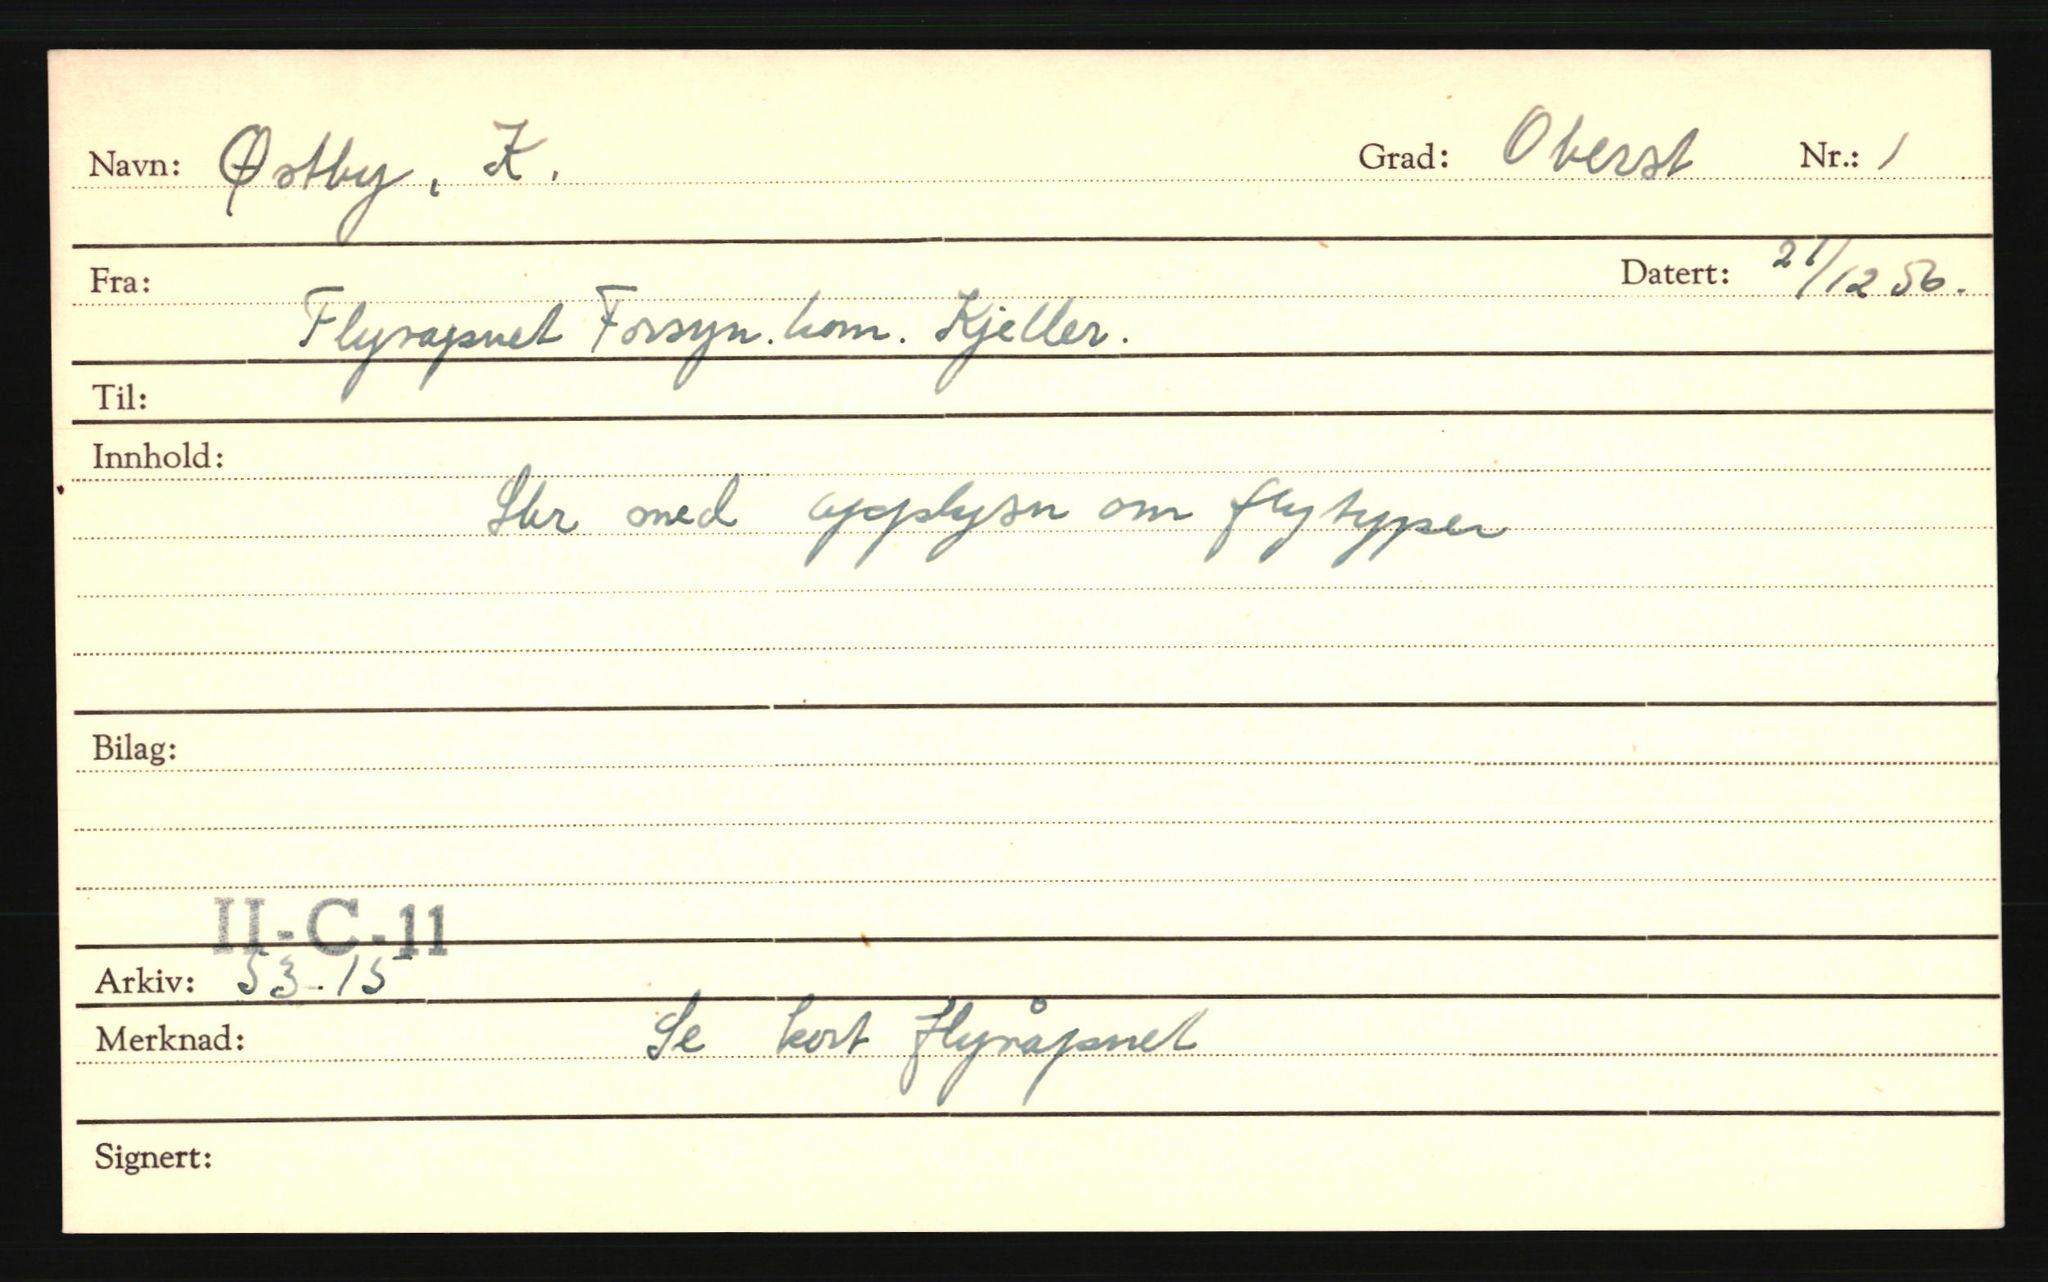 Navn: Østby, K. Grad: Oberst Nr.: 1
Fra: Datert: 21/12 56.
Flyvapnet Forsyn.kom. Kjeller.
Til:
Innhold:
Skr med opplysn om flytyper
Bilag:
II-C-11
Arkiv: 53.15
Merknad: Se kort flyvåpnet
Signert: